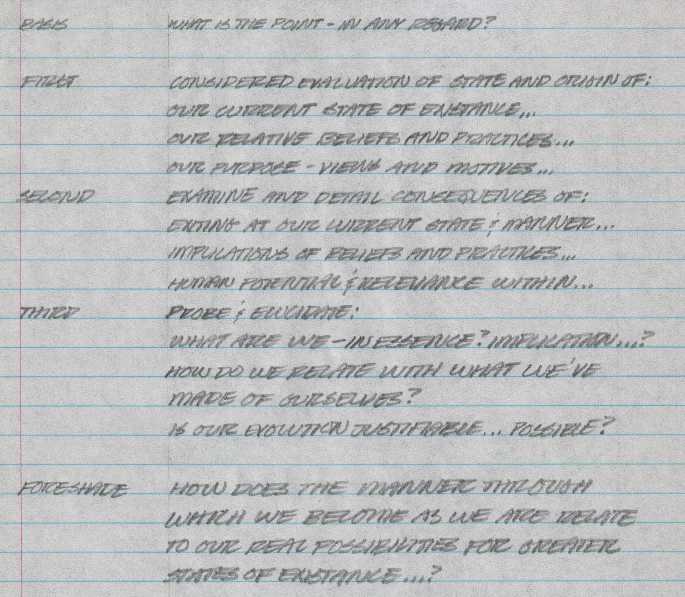 BASIS WHAT IS THE POINT - IN ANY REGARD?
FIRST CONSIDERED EVALUATION OF STATE AND ORIGIN OF:
OUR CURRENT STATE OF EXISTANCE...
OUR RELATIVE BELIEFS AND PRACTICES...
OUR PURPOSE - VIEWS AND MOTIVES...
SECOND EXAMINE AND DETAIL CONSEQUENCES OF:
EXITING AT OUR CURRENT STATE & MANNER...
IMPLICATIONS OF BELIEFS AND PRACTICES...
HUMAN POTENTIAL & RELEVANCE WITHIN...
THIRD PROBE & ELUCIDATE:
WHAT ARE WE - IN ESSENCE? IMPLICATION...?
HOW DO WE RELATE WITH WHAT WE'VE
MADE OF OURSELVES?
IS OUR EVOLUTION JUSTIFIABLE... POSSIBLE?
FORESHADE HOW DOES THE MANNER THROUGH
WHICH WE BECOME AS WE ARE RELATE
TO OUR REAL POSSIBILITIES FOR GREATER
STATES OF EXISTANCE...?